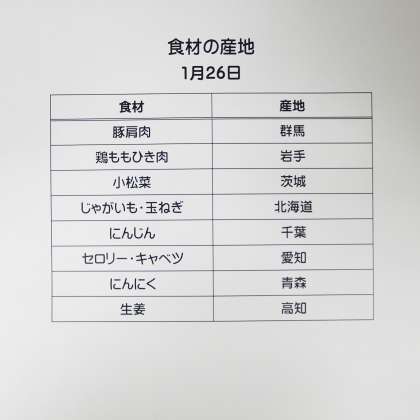 食材の産地
1月26日
食材 産地
豚肩肉 群馬
鶏ももひき肉 岩手
小松菜 茨城
じゃがいも・玉ねぎ 北海道
にんじん 千葉
セロリー・キャベツ 愛知
にんにく 青森
生姜 高知